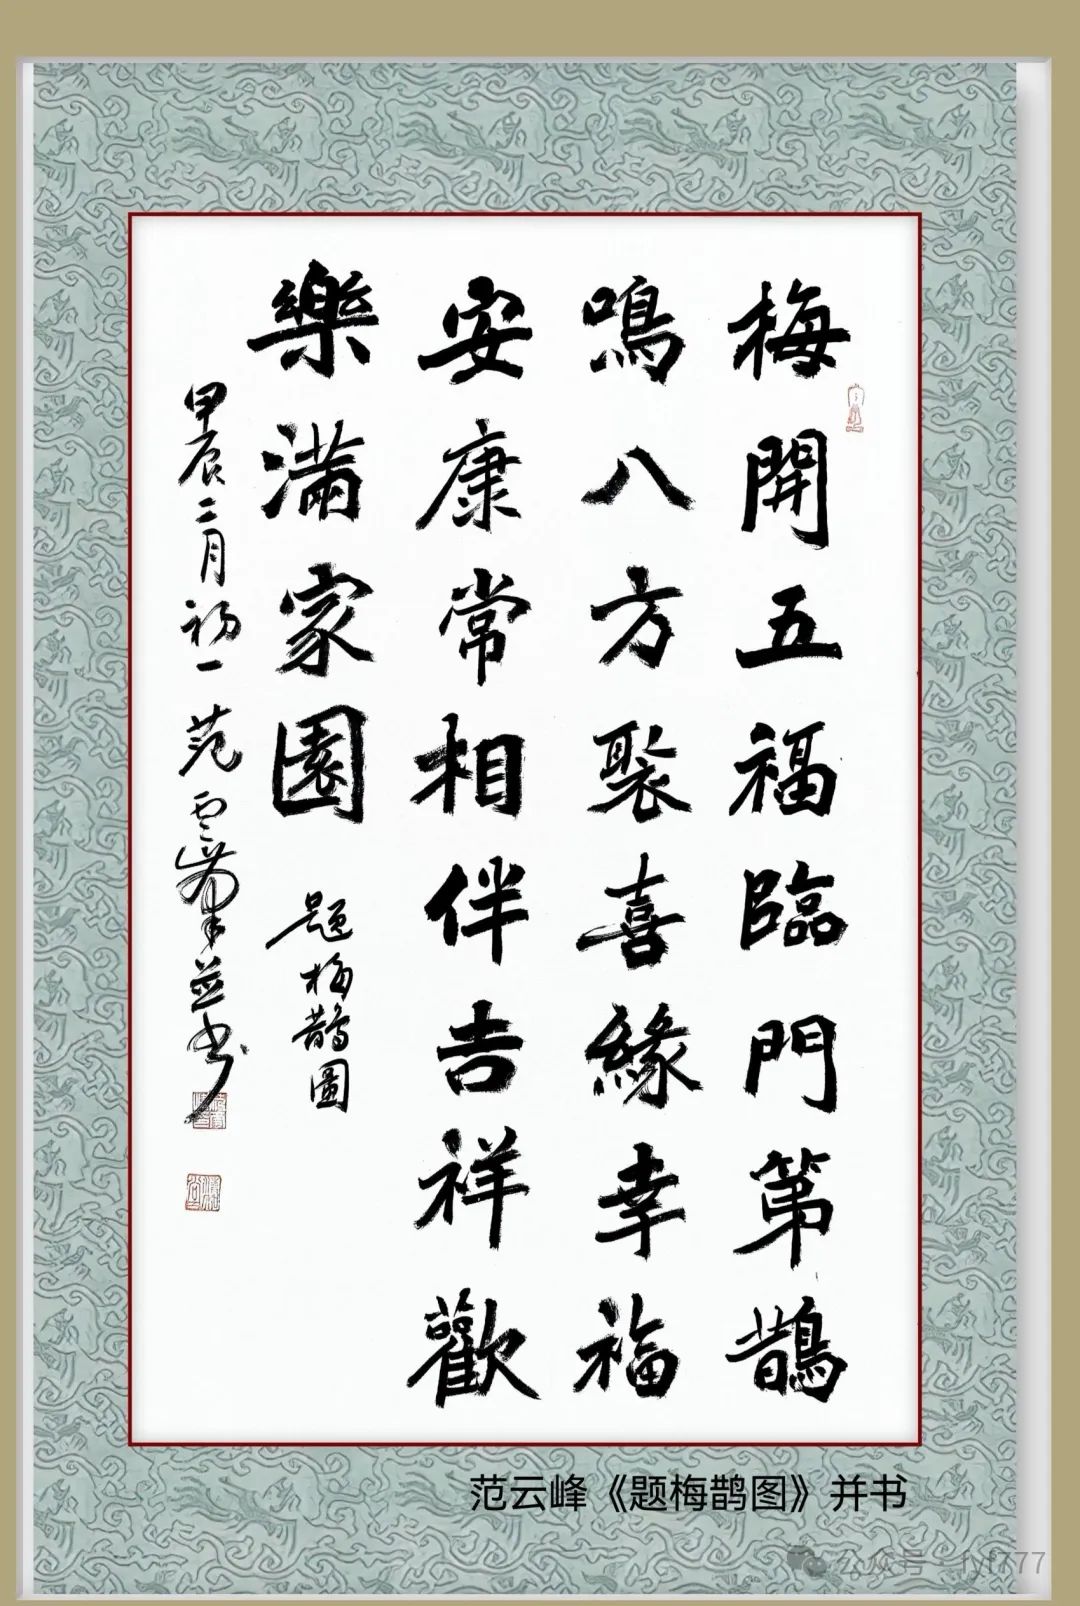 梅開五福臨門第鵲
鳴八方聚喜緣幸福
安康常相伴吉祥歡
樂滿家園
題梅鵲圖
甲辰二月初一范雲峯並书
范云峰《题梅鹊图》并书
公众号·fyf777